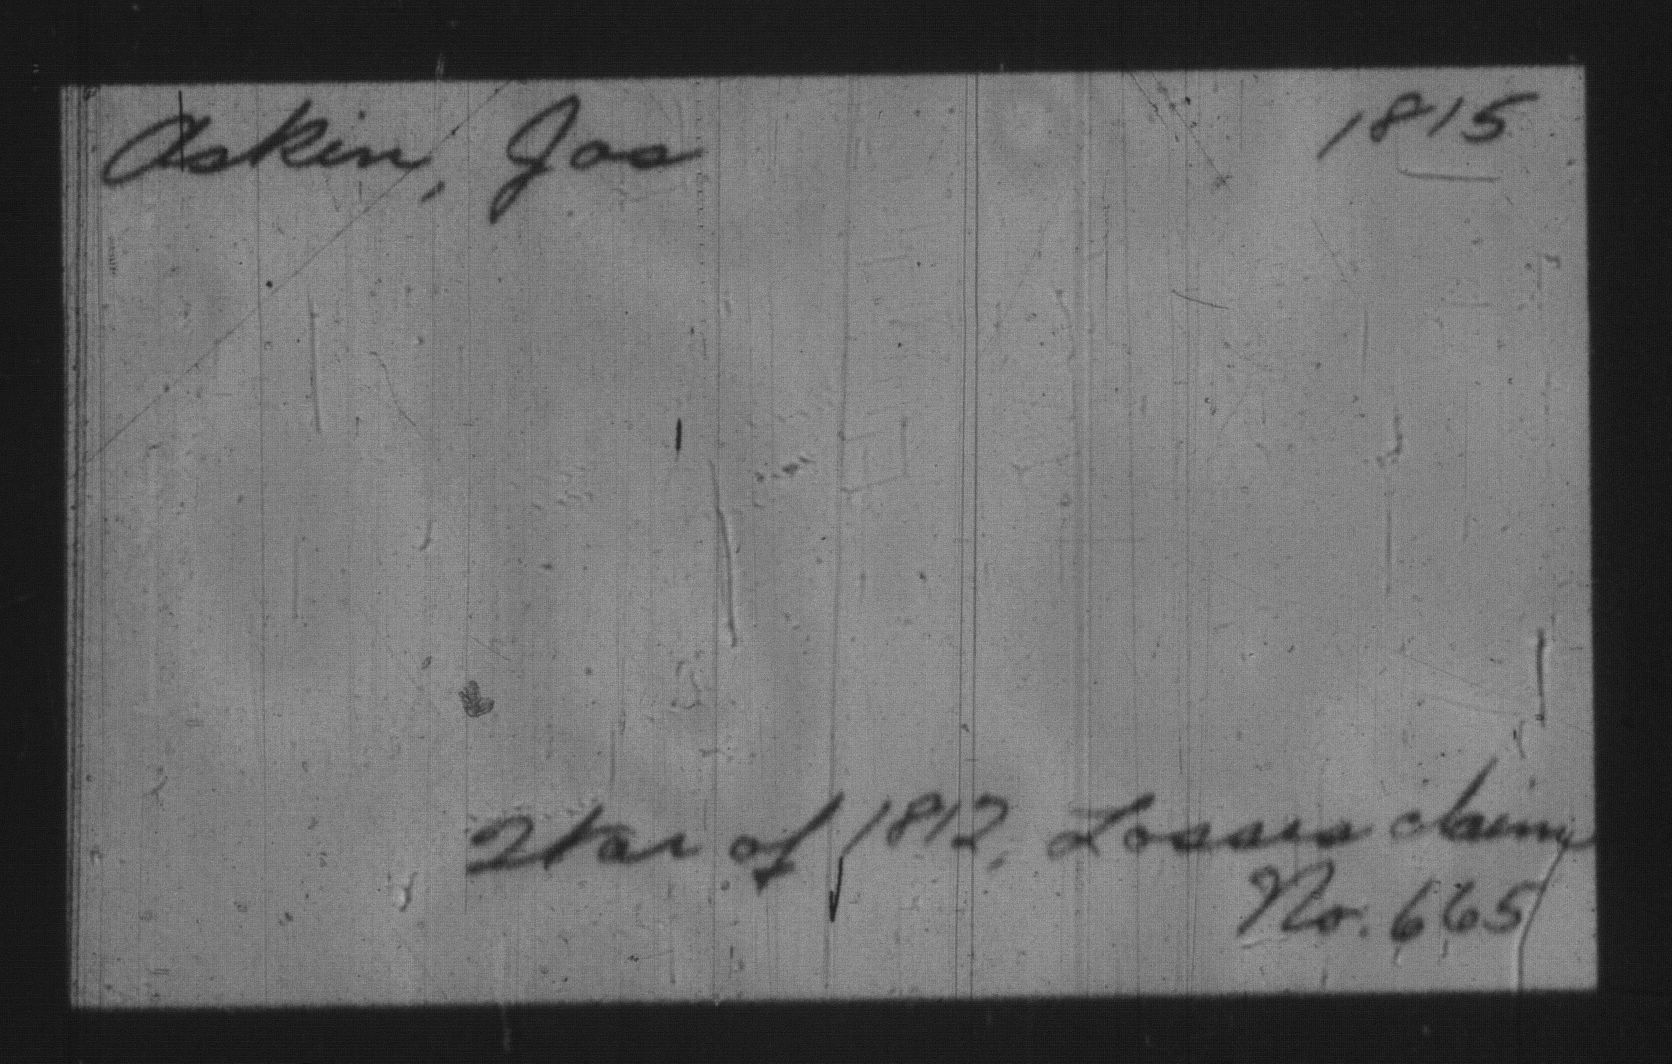 Askin, Jas 1815
War of 1812, Losses claims
No. 665